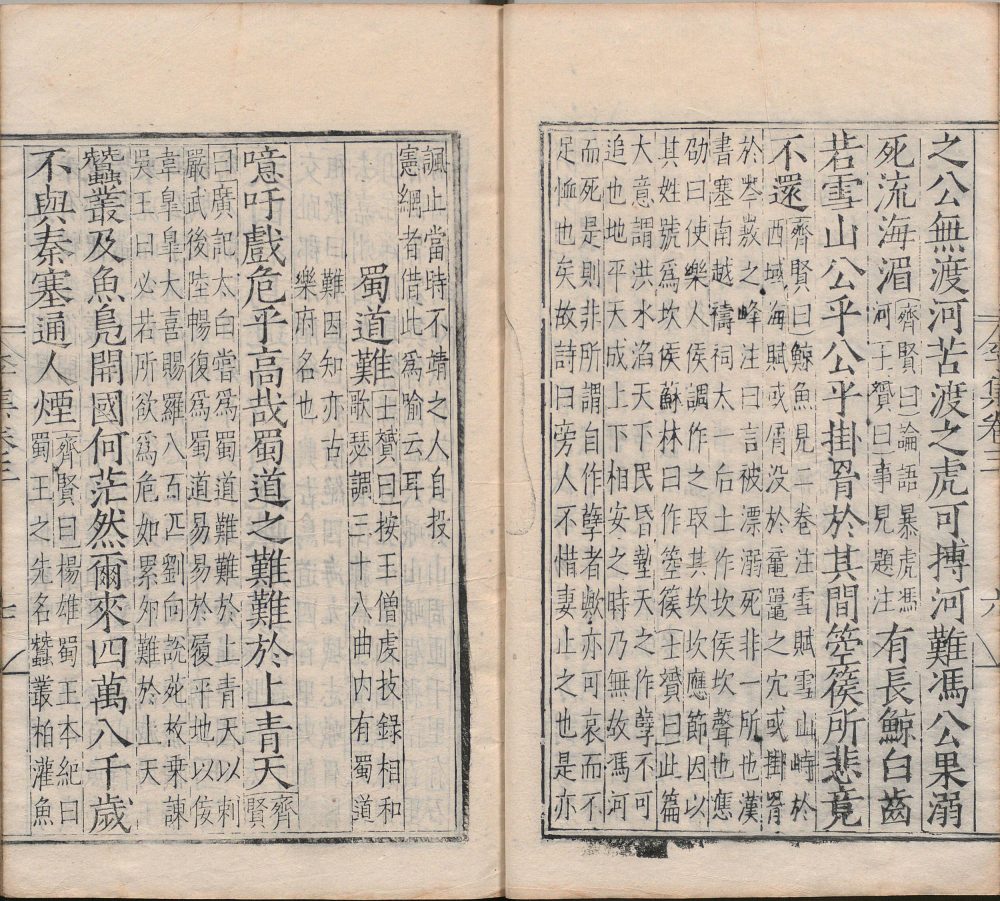 之公無渡河苦渡之虎可搏河難馮公果溺
死流海湄齊賢曰論語暴虎馮
河子贇曰事見題注有長鯨白齒
若雪山公乎公乎掛罥於其間箜篌所悲竟
不還齊賢曰鯨魚見二卷注雪賦雪山峙於
西域海賦或屑没於黿鼉之穴或掛罥
於岑嶅之峰注曰言被漂溺死非一所也漢
書塞南越禱祠太一后土作坎侯坎聲也應
劭曰使樂人侯調作之取其坎坎應節因以
其姓號爲坎侯蘇林曰作箜篌士贇曰此篇
大意謂洪水滔天下民昏墊天之作孽不可
追也地平天成上下相安之時乃無故馮河
而死是則非所謂自作孽者歟亦可哀而不
足恤也矣故詩曰旁人不惜妻止之也是亦
諷止當時不靖之人自投
憲網者借此爲喻云耳
蜀道難士贇曰按王僧虔技錄相和
歌瑟調三十八曲内有蜀道
難因知亦古
樂府名也
噫吁戲危乎高哉蜀道之難難於上青天齊
賢
曰廣記太白嘗爲蜀道難難於上青天以刺
嚴武後陸暢復爲蜀道易易於履平地以佞
韋皐皐大喜賜羅八百疋劉向說苑枚乗諫
吳王曰必若所欲爲危如累夘難於上天
蠶叢及魚鳧開國何茫然爾來四萬八千歲
不與秦塞通人煙齊賢曰楊雄蜀王本紀曰
蜀王之先名蠶叢柏灌魚